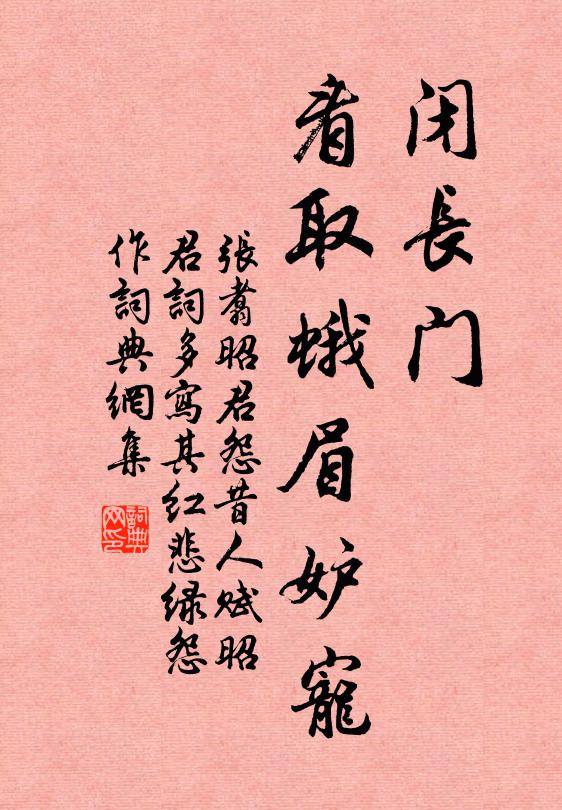 闭長门
看取蛾眉妒寵
張翥昭君怨昔人赋昭
君詞多寫其红悲绿怨
作詞典網集
詞典
网印